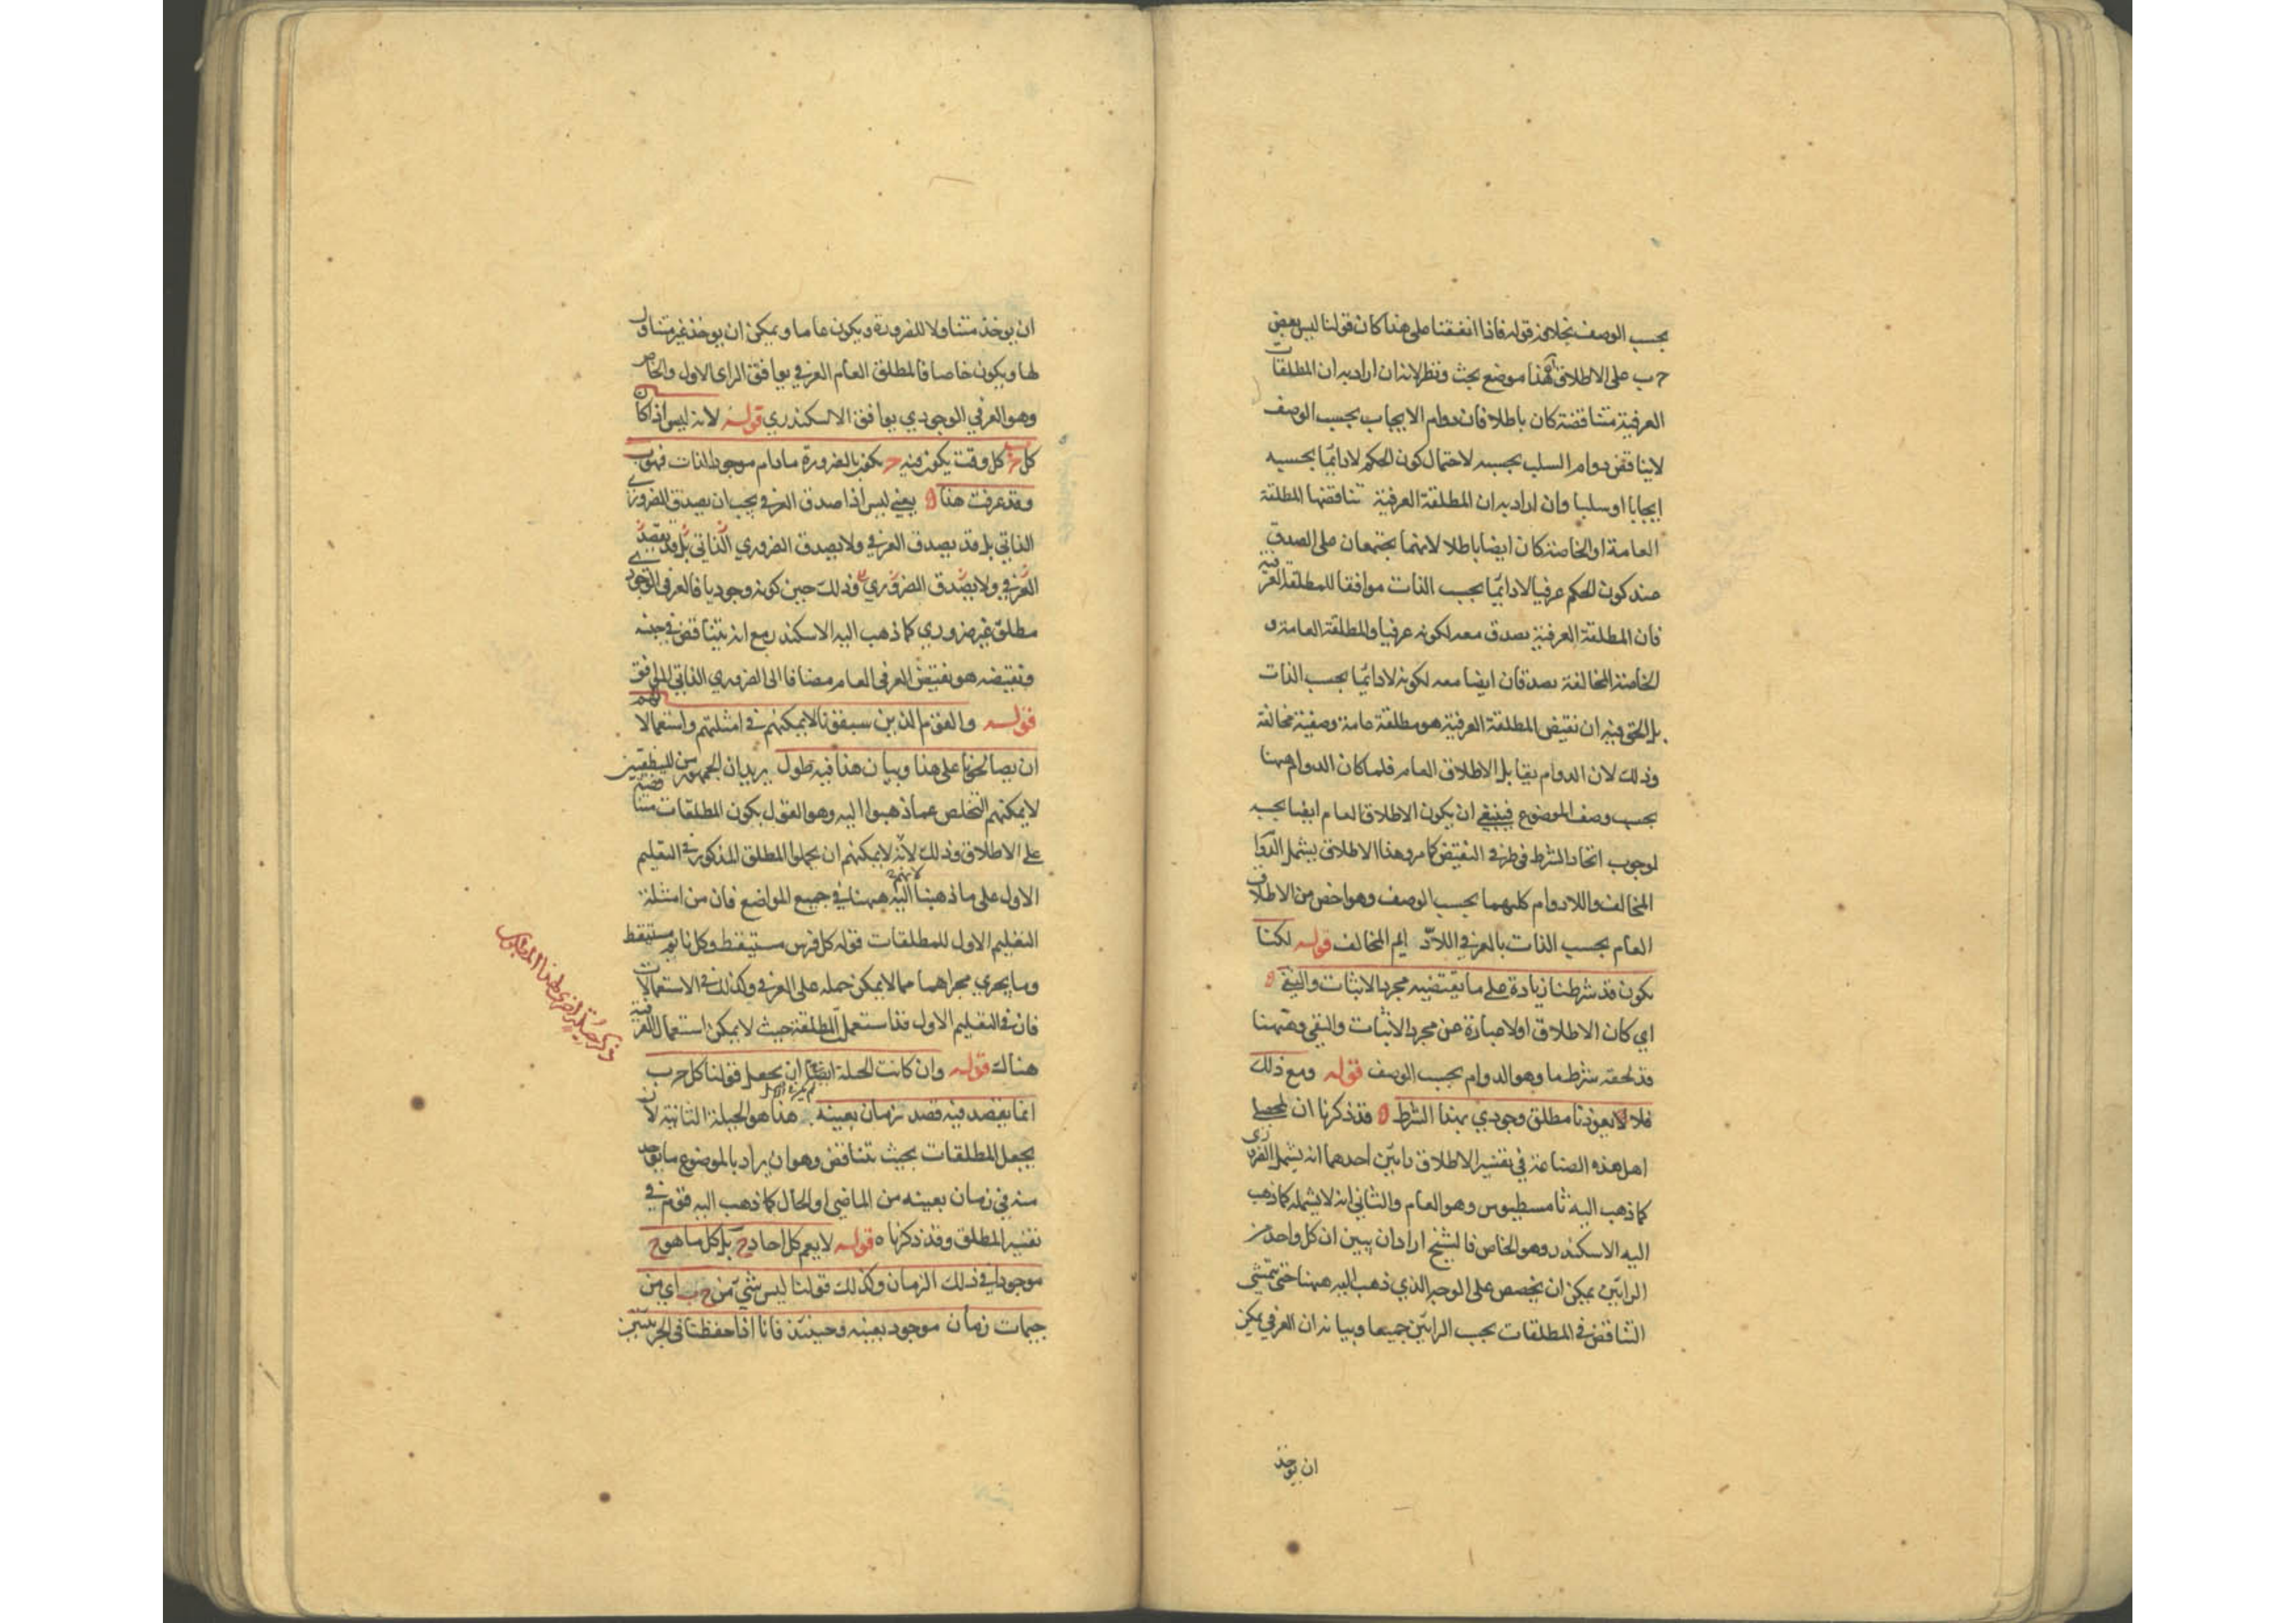 بحسب الوصف بخلافه قوله فاذا اتفقنا على هذا كان قولنا ليس بعض
ج ب على الاطلاق لهذا موضع بحث ونظر لانه ان اراد به ان المطلقات
العرفية متناقضة كان باطلا فان دوام الايجاب بحسب الوصف
لايناقض دوام السلب بحسبه لاحتمال كون الحكم لادائما بحسبه
ايجابا او سلبا وان اراد به ان المطلقة العرفية تناقضها المطلقة
العامة او الخاصة كان ايضا باطلا لانهما يجتمعان على الصدق
عند كون الحكم عرفيا لادائما بحسب الذات موافقا للمطلقة العرفية
فان المطلقة العرفية يصدق معه لكونه عرفيا والمطلقة العامة و
الخاصة المخالفة يصدقان ايضا معه لكونه لادائما بحسب الذات
بل الحق فيه ان نقيض المطلقة العرفية هو مطلقة عامة وصفية مخالفة
وذلك لان الدوام يقابل الاطلاق العام فلما كان الدوام ههنا
بحسب وصف الموضوع فينبغي ان يكون الاطلاق العام ايضا بحسبه
لوجوب اتحاد الشرط في طرفي النقيض كما مر وهذا الاطلاق يشمل الدوام
المخالف واللادوام كليهما بحسب الوصف وهو اخص من الاطلاق
العام بحسب الذات بالعرفي اللادائم المخالف قوله لكنا
نكون قد شرطنا زيادة على ما يقتضيه مجرد الاثبات والنفي
اي كان الاطلاق اولا عبارة عن مجرد الاثبات والنفي وههنا
قد لحقه شرط ما وهو الدوام بحسب الوصف قوله ومع ذلك
فلا لايعوذنا مطلق وجودي بهذا الشرط قد ذكرنا ان لمحصلي
اهل هذه الصناعة في تفسير الاطلاق رايين احدهما انه يشمل الضروري
كما ذهب اليه ثامسطيوس وهو العام والثاني انه لايشمله كما ذهب
اليه الاسكندر وهو الخاص فالشيخ اراد ان يبين ان كل واحد من
الرايين يمكن ان يخصص على الوجه الذي ذهب اليه ههنا حتى يتمشى
التناقض في المطلقات بحسب الرايين جميعا وبيانه ان العرفي يمكن
ان يوخذ
ان يوخذ متناولا للضرورة ويكون عاما ويمكن ان يوخذ غير متناول
لها ويكون خاصا فالمطلق العام العرفي يوافق الراي الاول والخاص
وهو العرفي الوجودي يوافق الاسكندري قوله لانه ليس اذا كان
كل ج ب كل وقت يكون فيه ج يكون بالضرورة مادام موجود الذات فهو ب
وقد عرفت هذا يعني ليس اذا صدق العرفي يجب ان يصدق الضروري
الذاتي بل قد يصدق العرفي ولا يصدق الضروري الذاتي بل قد يصدق
العرفي ولا يصدق الضروري وذلك حين كونه وجوديا فالعرفي الوجودي
مطلق غير ضروري كما ذهب اليه الاسكندر مع انه يتناقض في جنسه
ونقيضه هو نقيض العرفي العام مضافا الى الضروري الذاتي الموافق
قوله والقوم الذين سبقونا لايمكنهم في امثلتهم واستعمالاتهم
ان يصالحونا على هذا وبيان هذا فيه طول يريد ان الجمهور من المنطقيين
لايمكنهم التخلص عما ذهبوا اليه وهو القول بكون المطلقات متناقضة
على الاطلاق وذلك لانه لايمكنهم ان يحملوا المطلق المذكور في التعليم
الاول على ما ذهبنا اليه ههنا في جميع المواضع فان من امثلة
التعليم الاول للمطلقات قوله كل فرس مستيقظ وكل نائم مستيقظ
وما يجري مجراهما مما لايمكن حمله على العرفي وكذلك في الاستعمالات
فان في التعليم الاول قد استعمل المطلقة حيث لايمكن استعمال العرفية
هناك قوله وان كانت الحيلة ايضا ان يجعل قولنا كل ج ب
انما يقصد فيه قصد زمان بعينه هذا هو الحيلة الثانية لان
يجعل المطلقات بحيث تتناقض وهو ان يراد بالموضوع ما يوجد
منه في زمان بعينه من الماضي او الحال كما ذهب اليه قوم في
تفسير المطلق وقد ذكرناه قوله لايعم كل احاد ج بل كل ما هو ج
موجودا في ذلك الزمان وكذلك قولنا ليس شيء من ج ب اي من
جيمات زمان موجود بعينه وحينئذ فانا اذا حفظنا في الجزئيتين